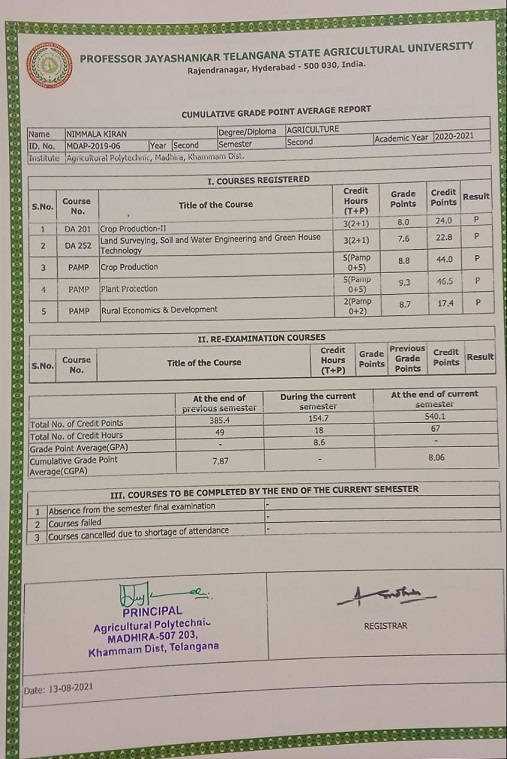 PROFESSOR JAYASHANKAR TELANGANA STATE AGRICULTURAL UNIVERSITY
Rajendranagar, Hyderabad - 500 030, India.
CUMULATIVE GRADE POINT AVERAGE REPORT
Name NIMMALA KIRAN Degree/Diploma AGRICULTURE
ID. No. MDAP-2019-06 Year Second Semester Second Academic Year 2020-2021
Institute Agricultural Polytechnic, Madhira, Khammam Dist.
I. COURSES REGISTERED
S.No. Course No. Title of the Course Credit Hours (T+P) Grade Points Credit Points Result
1 DA 201 Crop Production-II 3(2+1) 8.0 24.0 P
2 DA 252 Land Surveying, Soil and Water Engineering and Green House Technology 3(2+1) 7.6 22.8 P
3 PAMP Crop Production 5(Pamp 0+5) 8.8 44.0 P
4 PAMP Plant Protection 5(Pamp 0+5) 9.3 46.5 P
5 PAMP Rural Economics & Development 2(Pamp 0+2) 8.7 17.4 P
II. RE-EXAMINATION COURSES
S.No. Course No. Title of the Course Credit Hours (T+P) Grade Points Previous Grade Points Credit Points Result
At the end of previous semester During the current semester At the end of current semester
Total No. of Credit Points 385.4 154.7 540.1
Total No. of Credit Hours 49 18 67
Grade Point Average(GPA) - 8.6 -
Cumulative Grade Point Average(CGPA) 7.87 - 8.06
III. COURSES TO BE COMPLETED BY THE END OF THE CURRENT SEMESTER
1 Absence from the semester final examination -
2 Courses failed -
3 Courses cancelled due to shortage of attendance -
PRINCIPAL
Agricultural Polytechnic
MADHIRA-507 203,
Khammam Dist, Telangana
REGISTRAR
Date: 13-08-2021